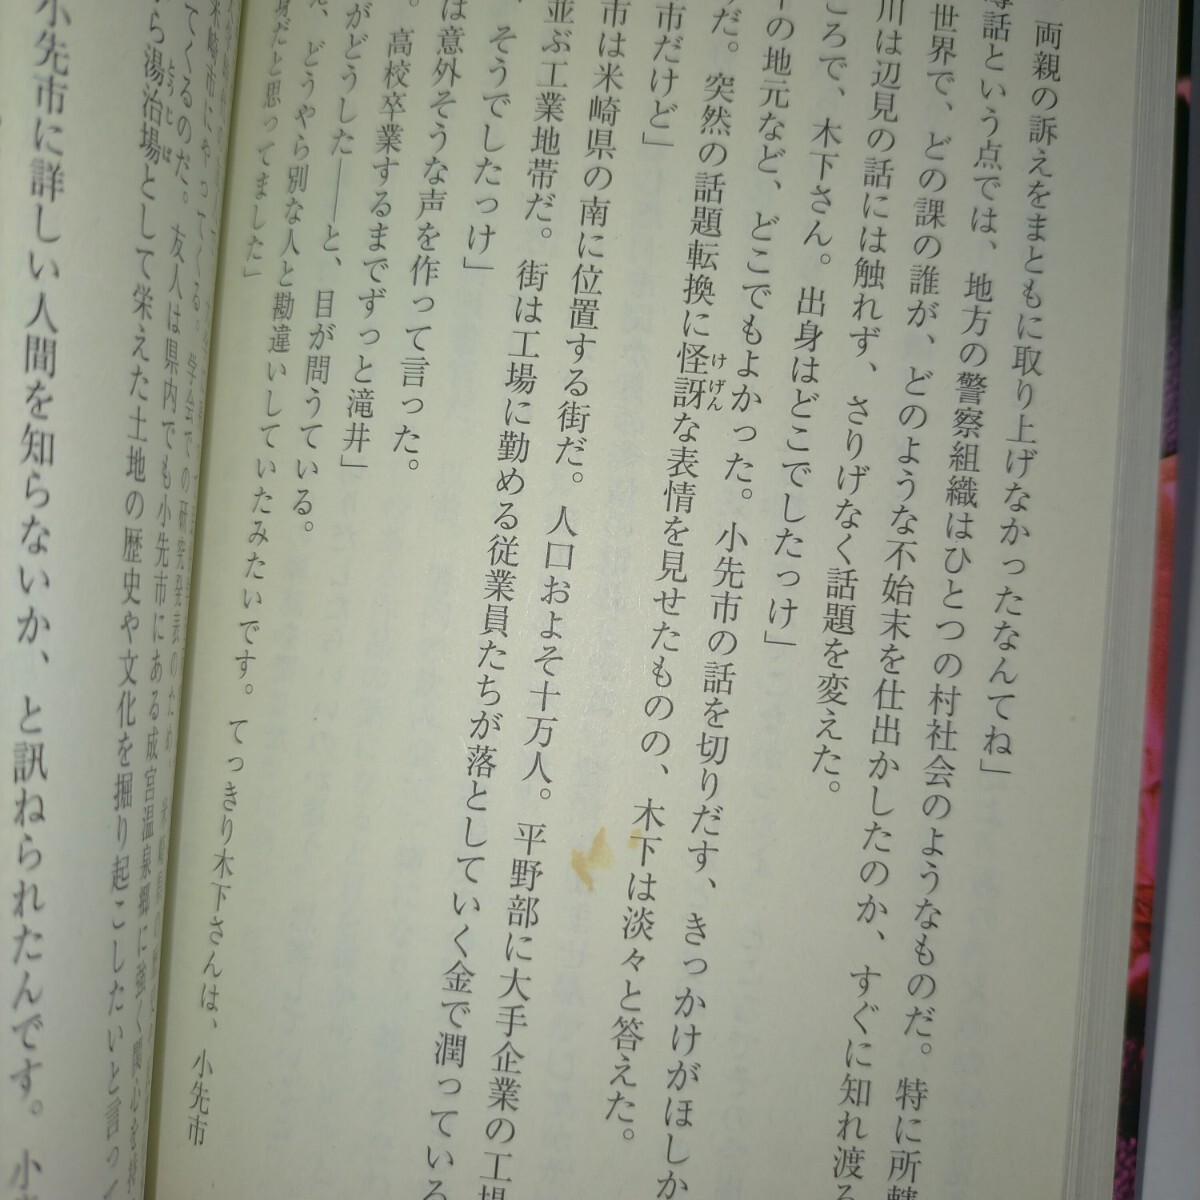 両親の訴えをまともに取り上げなかったなんてね」
話という点では、地方の警察組織はひとつの村社会のようなものだ。特に所轄
世界で、どの課の誰が、どのような不始末を仕出かしたのか、すぐに知れ渡る
川は辺見の話には触れず、さりげなく話題を変えた。
ころで、木下さん。出身はどこでしたっけ」
の地元など、どこでもよかった。小先市の話を切りだす、きっかけがほしか
だ。突然の話題転換に怪訝な表情を見せたものの、木下は淡々と答えた。
けげん
市だけど」
市は米崎県の南に位置する街だ。人口およそ十万人。平野部に大手企業の工場
並ぶ工業地帯だ。街は工場に勤める従業員たちが落としていく金で潤っている
、そうでしたっけ」
は意外そうな声を作って言った。
。高校卒業するまでずっと滝井」
がどうした――と、目が問うている。
、どうやら別な人と勘違いしていたみたいです。てっきり木下さんは、小先市
身だと思ってました」
米崎市にやってくる。学会での研究発表のため、
てくるのだ。友人は県内でも小先市にある成宮温泉郷に強く関心を持
ら湯治場として栄えた土地の歴史や文化を掘り起こしたいと言っ
とうじば
小先市に詳しい人間を知らないか、と訊ねられたんです。小